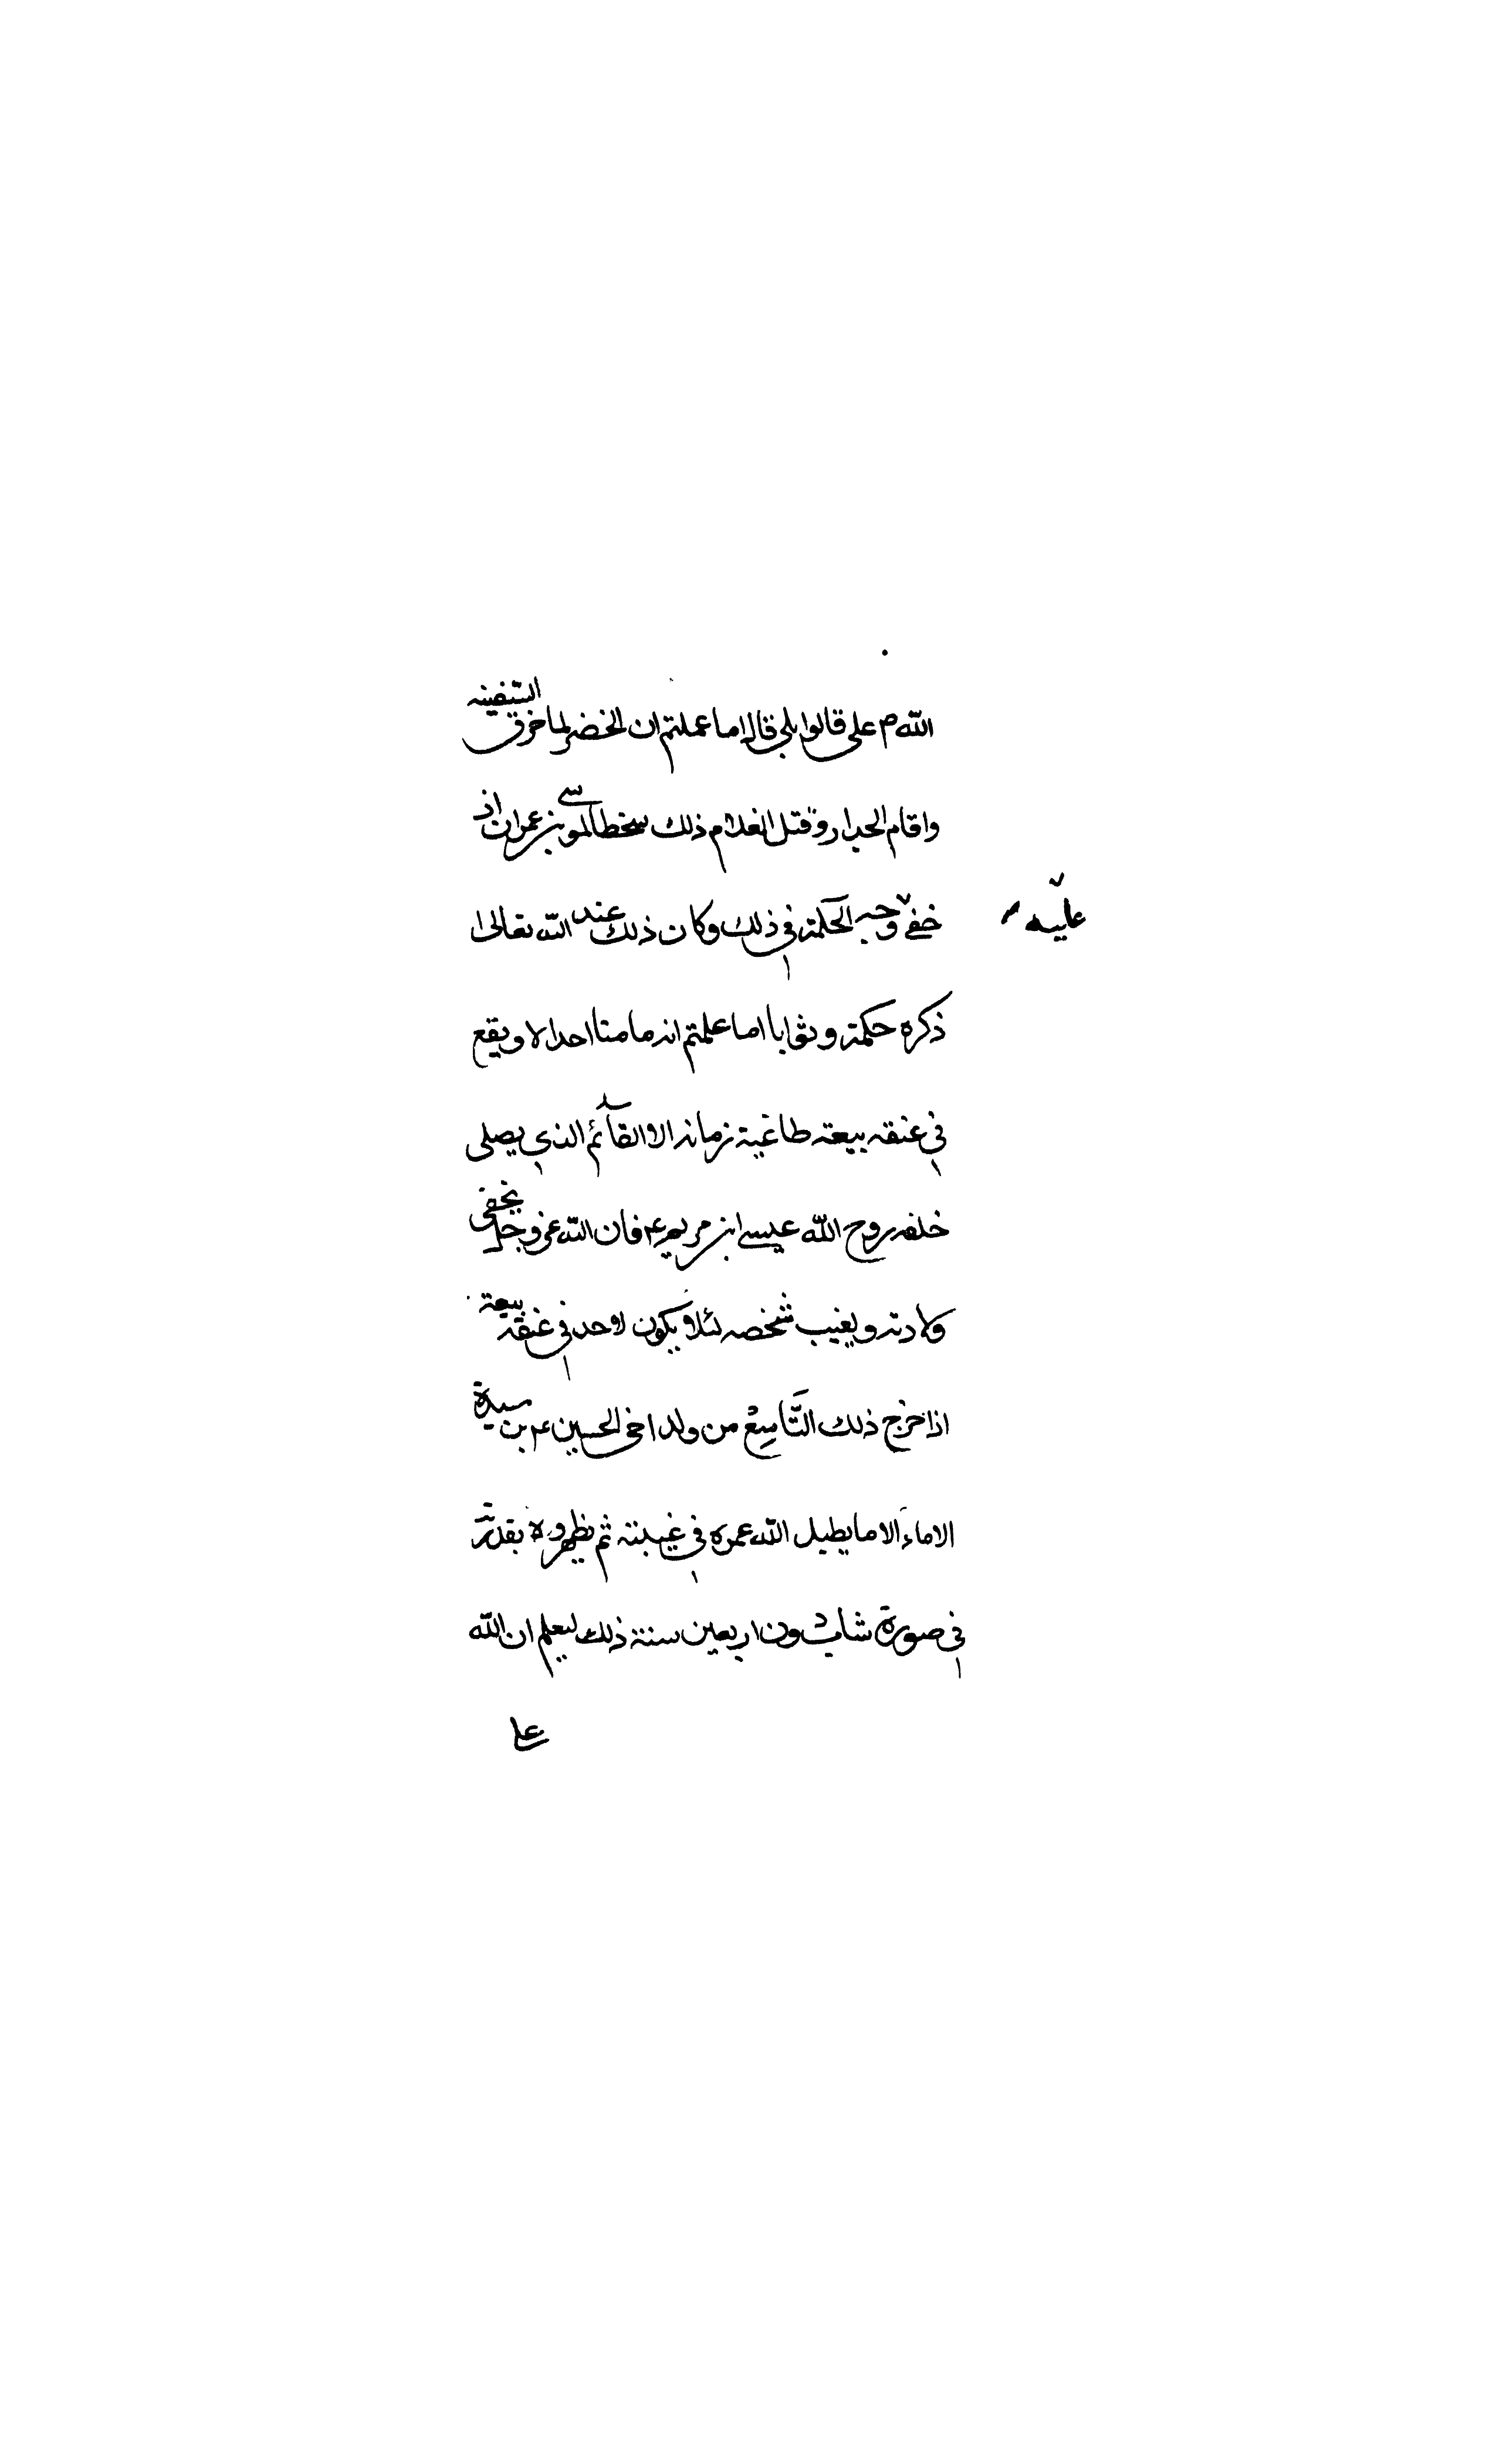 الله ص علي قالوا بلي قال اما عملتم ان الخضر لما خرق السّفينه
واقام الجدار وقتل الغلام ذلك سخطا لموسے بن عمران اذ
خفے وجه الحكمة في ذلك وكان ذلك عند الله تعالى ا
عليه
ذكره حكمة وثوابا اما علمتم انه ما منا احد الا ويقع
في عنقه بيعة طاغية زمانه الا القآئم الذي يصلى
خلفه روح الله عيسے ابن مريم ع فان الله عز وجل يخفى
ولادته ويغيب شخصه لئلا يكون لاحد في عنقه بيعة
اذا خرج ذلك التَّاسِعْ من ولد اخى الحسين ع بن سيدة
الاماء الا ما يطيل الله عمره في غيبته ثم يظهره بقدرته
في صورة شاب دون اربعين سنة ذلك ليعلم ان الله
علے